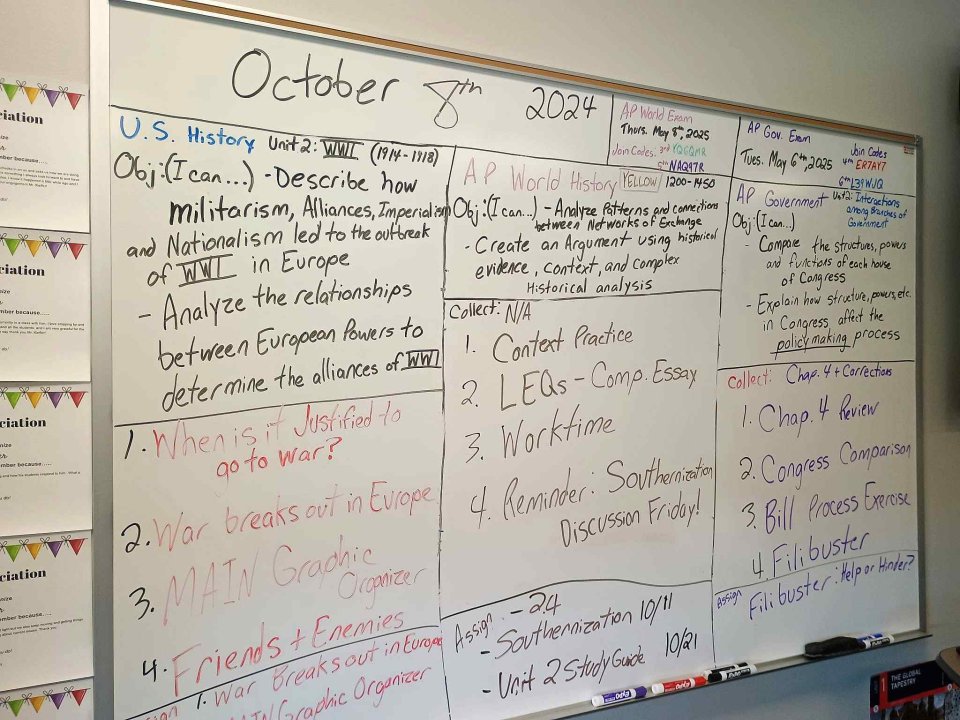 October 8th 2024
AP World Exam
Thurs. May 8th, 2025
Join Codes: 3rd YQGQMR
5th NAQ97R
AP Gov. Exam
Tues. May 6th, 2025
Join Codes
4th ER7AY7
6th L39WJQ
U.S. History Unit 2: WWI (1914-1918)
Obj: (I can...) - Describe how
militarism, Alliances, Imperialism
and Nationalism led to the outbreak
of WWI in Europe
- Analyze the relationships
between European Powers to
determine the alliances of WWI
1. When is it Justified to
go to war?
2. War breaks out in Europe
3. MAIN Graphic
Organizer
4. Friends + Enemies
1. War Breaks out in Europe
MAIN Graphic Organizer
AP World History YELLOW 1200-1450
Obj: (I can...) - Analyze Patterns and connections
between Networks of Exchange
- Create an Argument using historical
evidence, context, and complex
Historical analysis
Collect: N/A
1. Context Practice
2. LEQs - Comp. Essay
3. Worktime
4. Reminder: Southernization
Discussion Friday!
Assign: - 2.4
- Southernization 10/11
- Unit 2 Study Guide 10/21
AP Government Unit 2: Interactions
among Branches of
Government
Obj: (I can...)
- Compare the structures, powers
and functions of each house
of Congress
- Explain how structure, powers, etc.
in Congress affect the
policymaking process
Collect: Chap. 4 + Corrections
1. Chap. 4 Review
2. Congress Comparison
3. Bill Process Exercise
4. Filibuster
Assign Filibuster: Help or Hinder?
ciation
mber because....
ciation
mber because....
ciation
mber because....
ciation
mber because....
EXPO
EXPO
THE GLOBAL
TAPESTRY